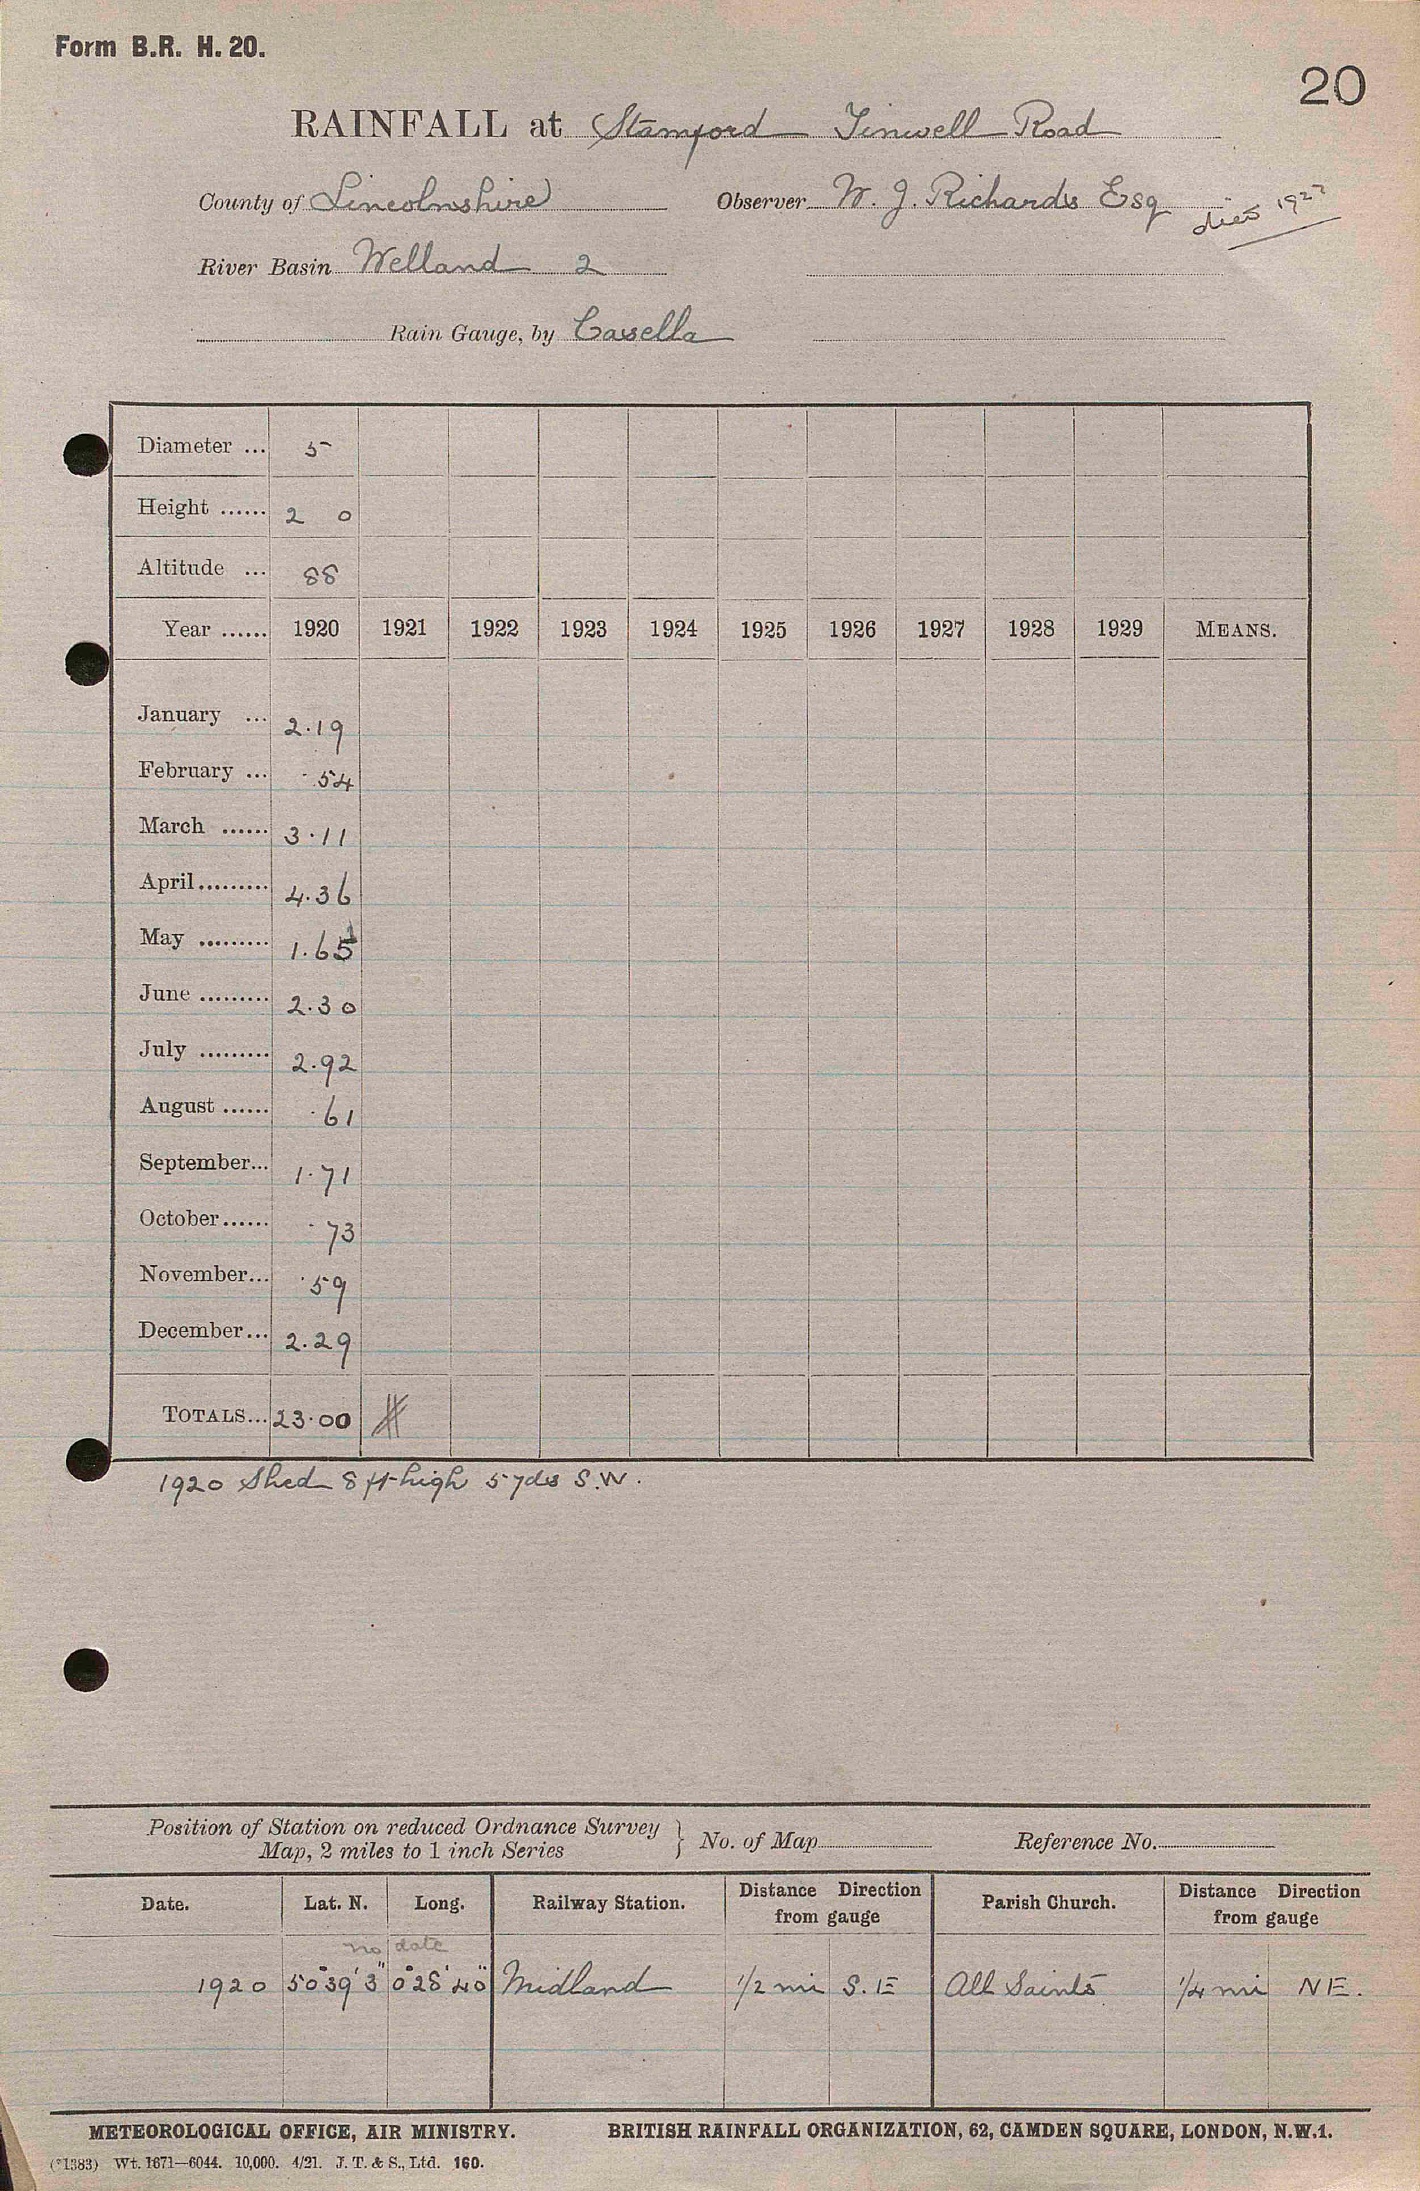 Form B.R. H. 20.
20
RAINFALL at Stamford Tinwell Road
County of Lincolnshire Observer W. J. Richards Esq died 1922
River Basin Welland 2
Rain Gauge, by Casella
Diameter ... 5
Height ...... 2 0
Altitude ... 88
Year ...... 1920 1921 1922 1923 1924 1925 1926 1927 1928 1929 MEANS.
January ... 2.19
February ... .54
March ...... 3.11
April ......... 4.36
May ......... 1.65
June ......... 2.30
July ......... 2.92
August ...... .61
September... 1.71
October ...... .73
November... .59
December... 2.29
TOTALS... 23.00
1920 Shed 8 ft high 5 yds S.W.
Position of Station on reduced Ordnance Survey
Map, 2 miles to 1 inch Series } No. of Map Reference No.
Date. Lat. N. Long. Railway Station. Distance Direction from gauge Parish Church. Distance Direction from gauge
no date
1920 50°39'3" 0°28'40" Midland 1/2 mi S.E All Saints 1/4 mi NE.
METEOROLOGICAL OFFICE, AIR MINISTRY. BRITISH RAINFALL ORGANIZATION, 62, CAMDEN SQUARE, LONDON, N.W.1.
(*1383) Wt. 1671—6044. 10,000. 4/21. J. T. & S., Ltd. 160.